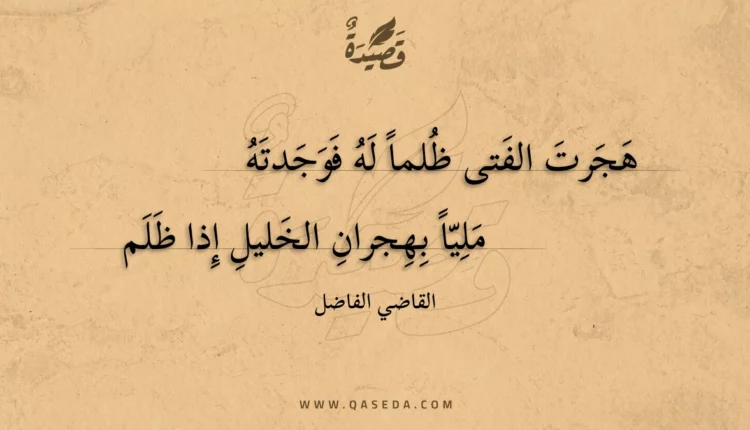 قَصِيْدَةٌ
هَجَرتَ الفَتى ظُلماً لَهُ فَوَجَدتَهُ
مَلِيّاً بِهِجرانِ الخَليلِ إِذا ظَلَم
القاضي الفاضل
WWW.QASEDA.COM